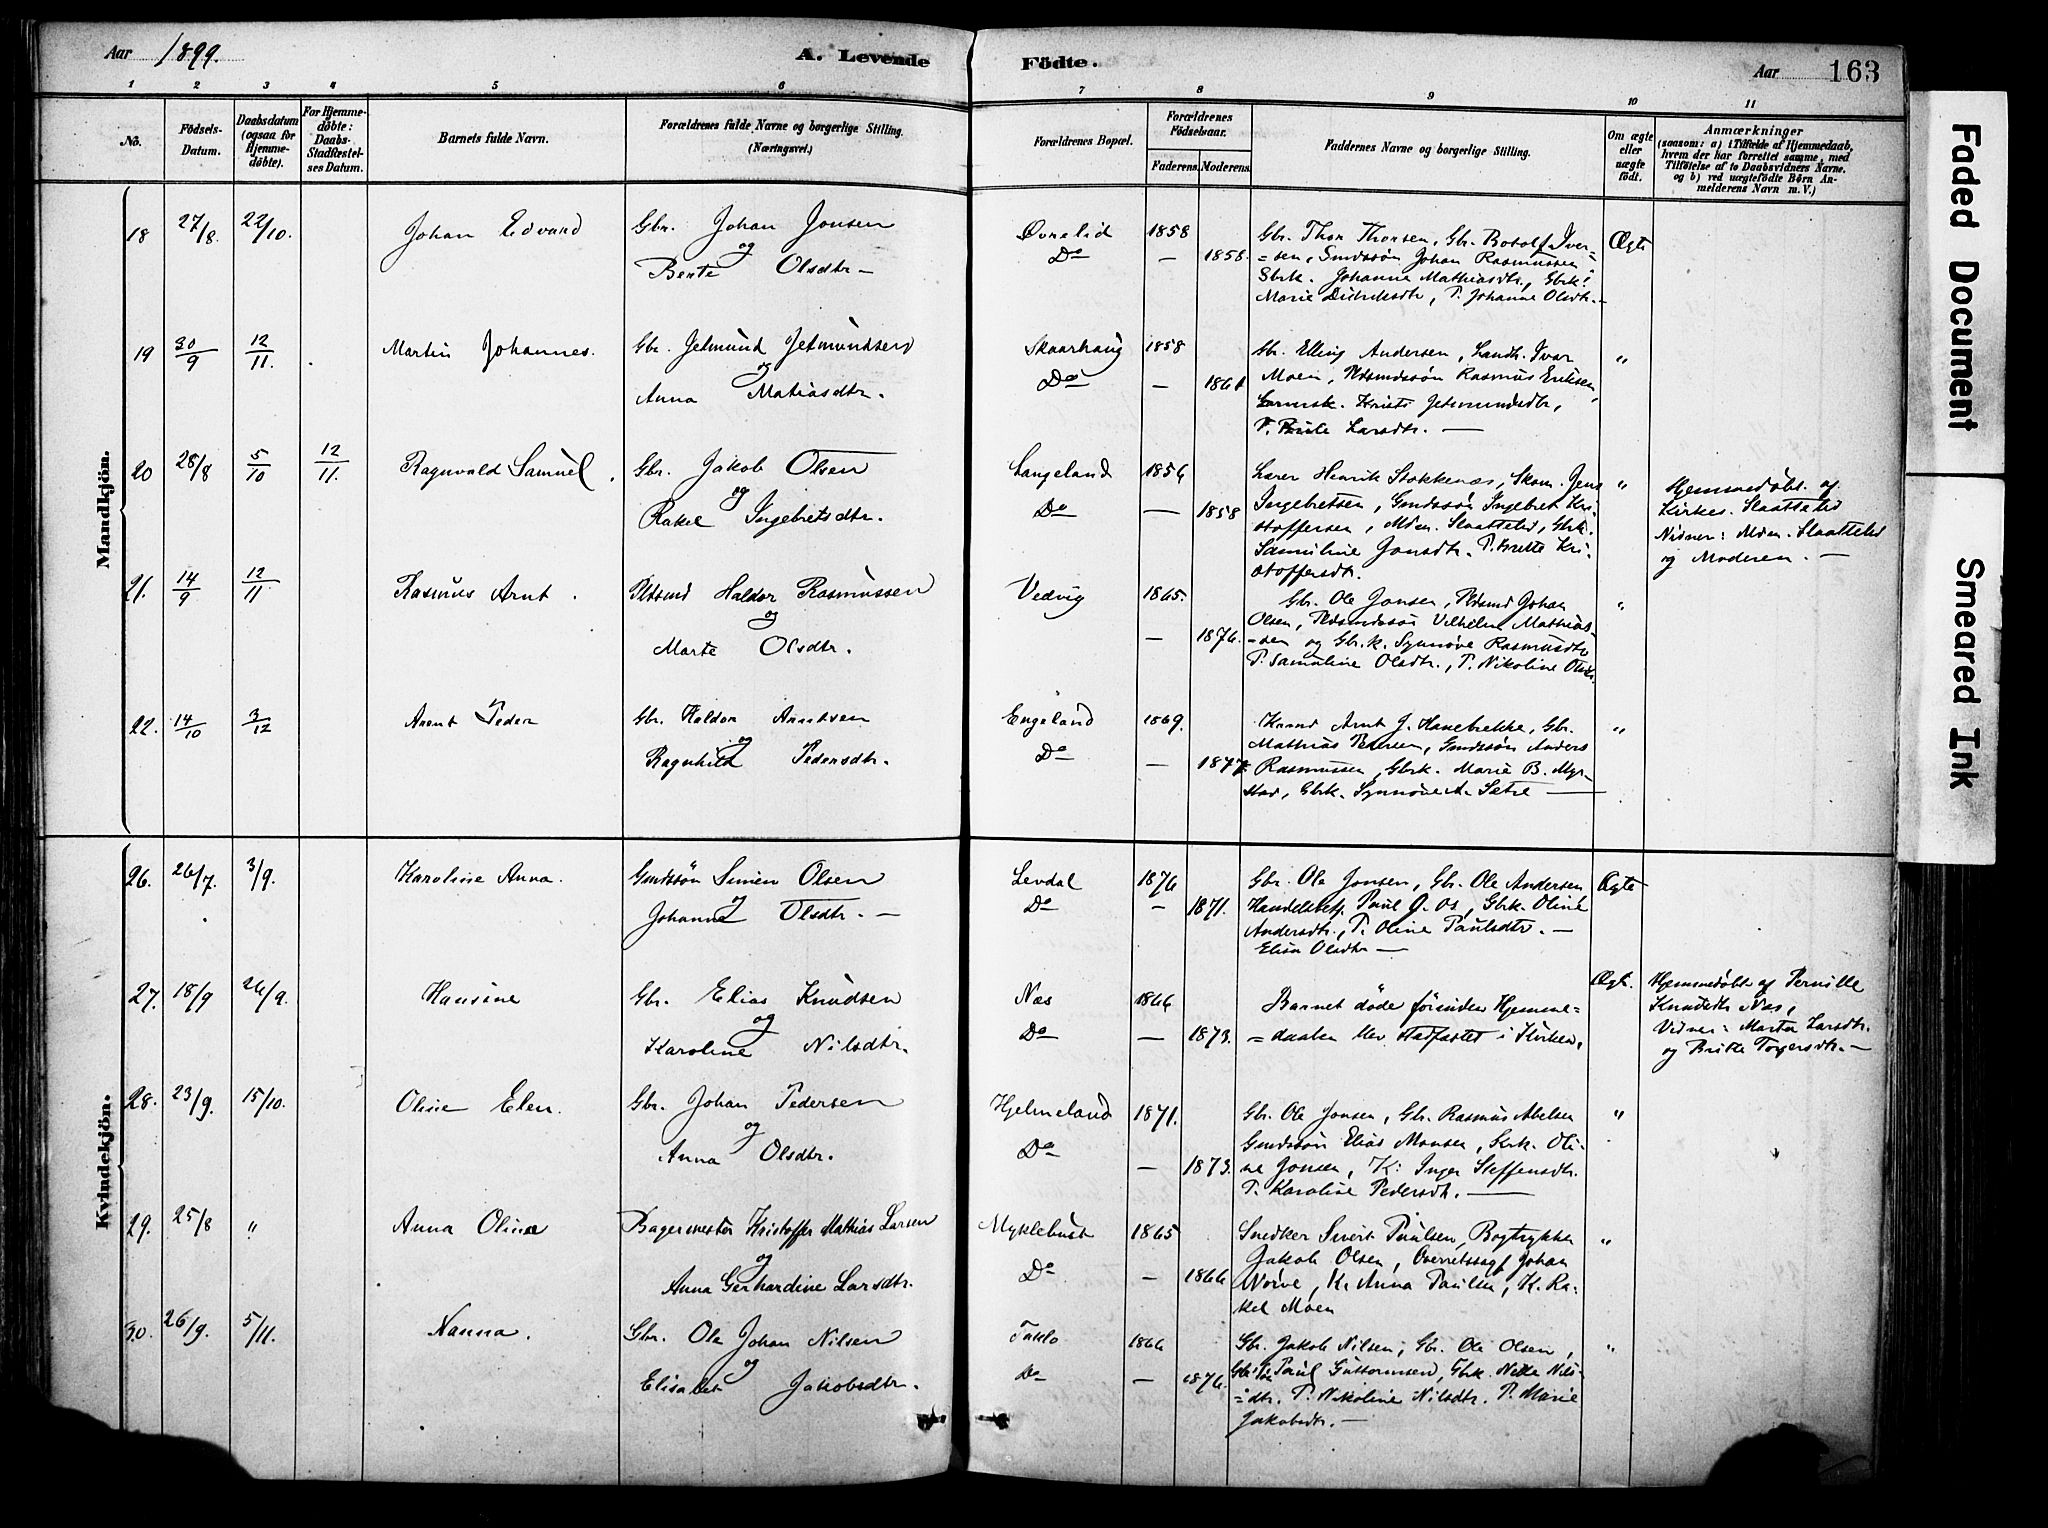 Aar 1899.
A. Levende
Födte.
Aar 163
1 2 3 4 5 6 7 8 9 10 11
No.
Födsels-Datum.
Daabsdatum (ogsaa for Hjemmedöbte).
For Hjemmedöbte: Daabs-Stadfæstelses Datum.
Barnets fulde Navn.
Forældrenes fulde Navne og borgerlige Stilling. (Næringsvei.)
Forældrenes Bopæl.
Forældrenes Födselsaar.
Faderens. Moderens.
Faddernes Navne og borgerlige Stilling.
Om ægte eller uægte födt.
Anmærkninger
(saasom: a) i Tilfælde af Hjemmedaab, hvem der har forrettet samme, med Tilföielse af to Daabsvidners Navne. og b) ved uægtefödte Börn Anmelderens Navn m. V.)
Mandkjön.
18 27/8. 22/10. Johan Edvard
Gbr. Johan Jonsen
og
Berte Olsdtr —
Øvrelid 1858
Do — 1858.
Gbr. Thor Thorsen, Gbr. Botolf Iver=
=sen, Gmdssøn Johan Rasmussen
Gbrk. Johanne Mathiasdtr, Gbrk:
Marie Didriksdtr, P. Johanne Olsdtr. —
Ægte
19 30/9 12/11. Martin Johannes.
Gbr. Jetmund Jetmundsen
og
Anna Matiasdtr.
Skaarhaug 1858
Do — 1861
Gbr. Elling Andersen, Landh. Ivar
Moen, Pldsmdssøn Rasmus Eriksen,
Jetmundsdtr,
Larsdtr. —
"
20 28/8 5/10 12/11. Ragnvald Samuel.
Gbr. Jakob Olsen
og
Rakel Ingebretsdtr.
Langeland 1856
Do — 1858
Lærer Henrik Stokkenæs, Skom. Jens
Ingebretsen, Gmdssøn Ingebret Kri-
stoffersen, Mdm. Slaattelid, Gbrk.
Samuline Jonsdtr. P. Brette Kri-
stoffersdtr.
"
Hjemmedøbt af
Kirkes. Slaattelid
Vidner: Mdm. Slaattelid
og Moderen. —
21. 14/9 12/11 Rasmus Arnt.
Pldsmd Haldor Rasmussen
og
Marte Olsdtr.
Vedvig 1865.
— 1876.
Gbr. Ole Jonsen, Pldsmd Johan
Olsen, Pldsmdssøn Vilhelm Mathias-
=sen og Gbr.k. Synnøve Rasmusdtr
P. Samuline Olsdtr., P. Nikoline Olsdtr.
"
22. 14/10 3/12 Arent Peder
Gbr. Haldor Arntsen
og
Ragnhild Pedersdtr.
Engeland 1869.
Do — 1877
Arnt J. Hanebrekke, Gbr.
Mathias Pedersen, Gmdssøn Anders
Rasmussen, Gbrk. Marie B. Myr-
stad, Gbrk. Synnøve A. Sætre —
"
Kvindekjön.
26. 26/7. 3/9. Karoline Anna.
Gmdssön Simen Olsen
og
Johanne Olsdtr. —
Levdal 1876
Do — 1871.
Gbr. Ole Jonsen, Gbr. Ole Andersen
Handelsbetj. Paul J. Os, Gbrk. Oline
Andersdtr., P. Oline Paulsdtr. —
Elisa Olsdtr —
Ægte
27. 18/9 26/9. Hansine
Gbr. Elias Knudsen
og
Karoline Nilsdtr.
Næs 1866
Do — 1873.
Barnet døde førinden Hjemme=
=daaben blev stadfæstet i Kirken.
Ægt.
Hjemmedøbt af Pernille
Knudsdtr Næs,
Vidner: Marta Larsdtr.
og Britte Torgersdtr. —
28. 23/9. 15/10. Oline Elen.
Gbr. Johan Pedersen
og
Anna Olsdtr.
Hjelmeland 1871.
Do — 1873.
Gbr. Ole Jonsen, Gbr. Rasmus Abelsen
Gmdssøn Elias Monsen, Kirk. Oli-
ne Jonsen, K: Inger Steffensdtr.
P. Karoline Pedersdtr. —
"
29. 25/8 " Anna Oline
Bagermester Kristoffer Mathias Larsen
og
Anna Gerhardine Larsdtr.
Myklebust 1865
Do — 1866
Snedker Sivert Paulsen, Bogtrykker
Jakob Olsen, Overretssagf. Johan
Norve, K. Anna Paulsen, K. Ra-
kel Moen
"
30. 26/9. 5/11. Nanna.
Gbr. Ole Johan Nilsen
og
Elisabet Jakobsdtr.
Taklo 1866
Do — 1876.
Gbr. Jakob Nilsen, Gbr. Ole Olsen,
Paul Guttormsen, Gbrk. Nille Nils-
=dtr. P. Nikoline Nilsdtr. P. Marie
Jakobsdtr. —
"
Faded Document
Smeared Ink